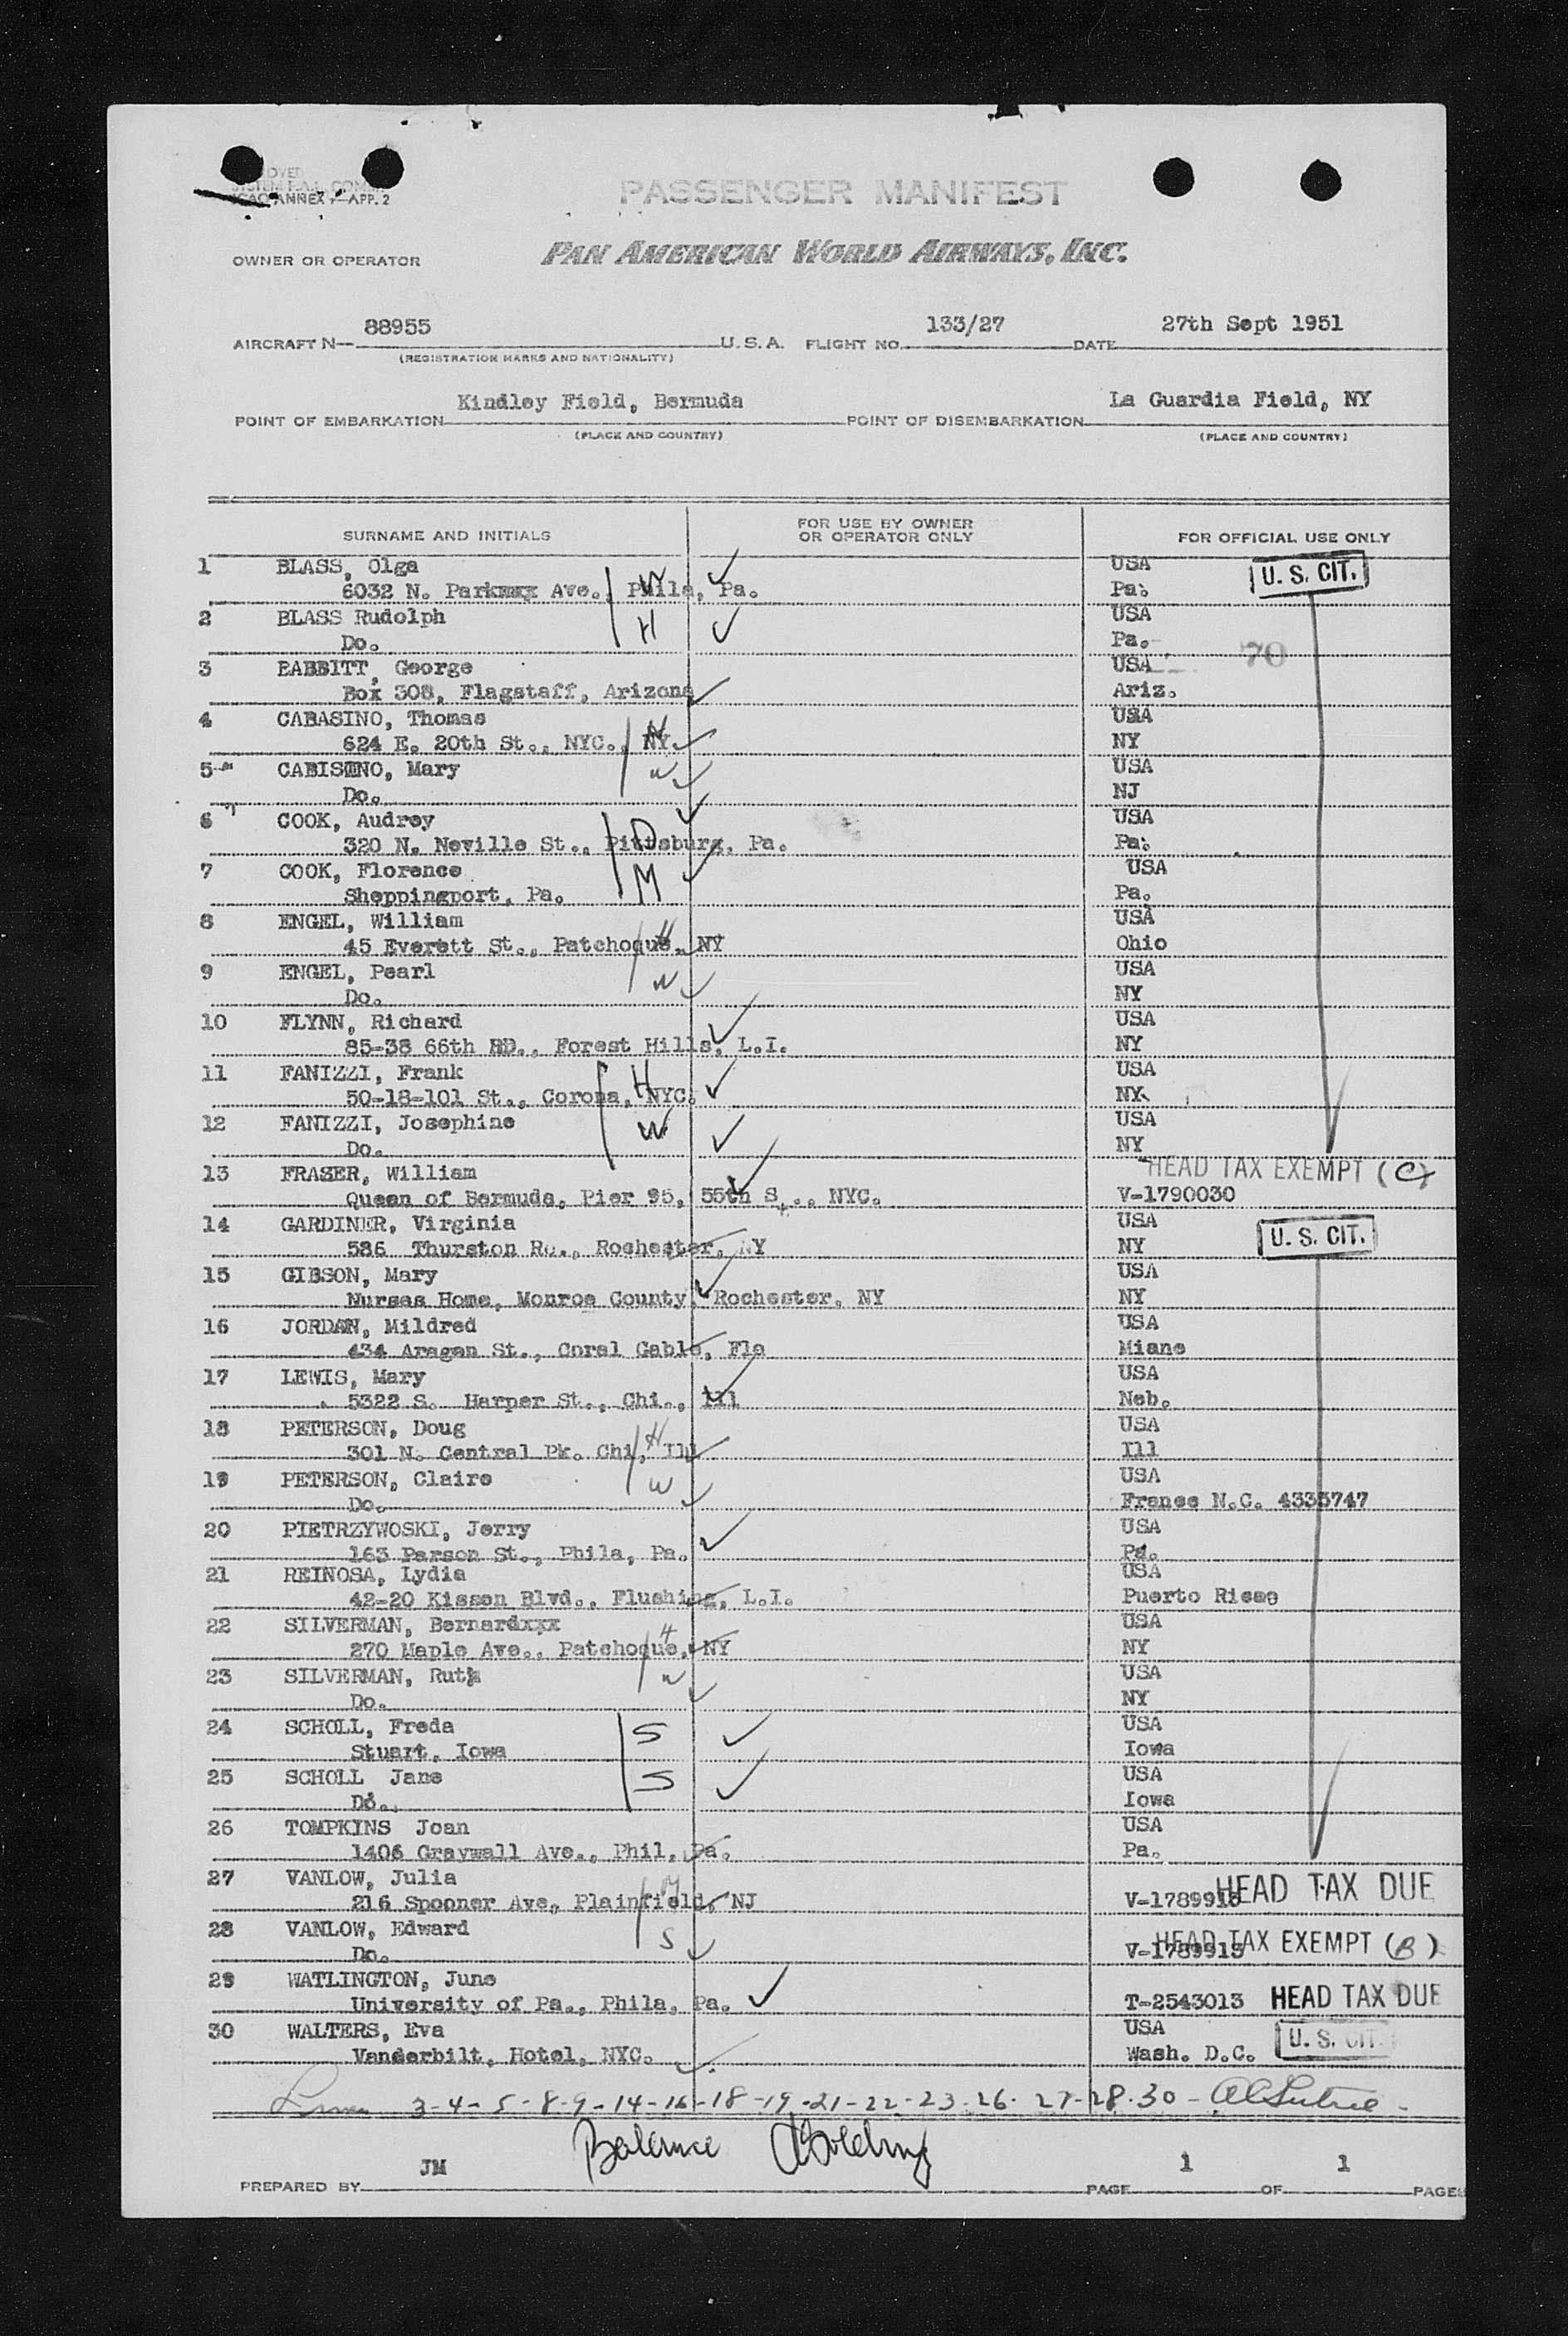 ICAO ANNEX 9-APP. 2
PASSENGER MANIFEST
OWNER OR OPERATOR PAN AMERICAN WORLD AIRWAYS, INC.
AIRCRAFT N— 88955 U.S.A. FLIGHT NO. 133/27 DATE 27th Sept 1951
(REGISTRATION MARKS AND NATIONALITY)
POINT OF EMBARKATION Kindley Field, Bermuda POINT OF DISEMBARKATION La Guardia Field, NY
(PLACE AND COUNTRY) (PLACE AND COUNTRY)
SURNAME AND INITIALS FOR USE BY OWNER OR OPERATOR ONLY FOR OFFICIAL USE ONLY
1 BLASS, Olga USA U. S. CIT.
6032 N. Parkxxx Ave., Phila, Pa. W Pa.
2 BLASS Rudolph USA
Do. H Pa. 70
3 BABBITT, George USA
Box 308, Flagstaff, Arizona Ariz.
4 CABASINO, Thomas USA
624 E. 20th St., NYC., NY. H NY
5 CABISINO, Mary W USA
Do. NJ
6 COOK, Audrey USA
320 N. Neville St., Pittsburg, Pa. D Pa.
7 COOK, Florence USA
Sheppingport, Pa. M Pa.
8 ENGEL, William USA
45 Everett St., Patchogue, NY H Ohio
9 ENGEL, Pearl W USA
Do. NY
10 FLYNN, Richard USA
85-38 66th RD., Forest Hills, L.I. NY
11 FANIZZI, Frank H USA
50-18-101 St., Corona, NYC. NY
12 FANIZZI, Josephine W USA
Do. NY
13 FRASER, William HEAD TAX EXEMPT (C)
Queen of Bermuda, Pier 95, 55th St., NYC. V-1790030
14 GARDINER, Virginia USA U. S. CIT.
586 Thurston Ro., Rochester, NY NY
15 GIBSON, Mary USA
Nurses Home, Monroe County, Rochester, NY NY
16 JORDAN, Mildred USA
434 Aragan St., Coral Gable, Fla Miane
17 LEWIS, Mary USA
5322 S. Harper St., Chi., Ill Neb.
18 PETERSON, Doug H USA
301 N. Central Pk. Chi, Ill Ill
19 PETERSON, Claire W USA
Do. France N.C. 4335747
20 PIETRZYWOSKI, Jerry USA
163 Parson St., Phila, Pa. Pa.
21 REINOSA, Lydia USA
42-20 Kissen Blvd., Flushing, L.I. Puerto Rico
22 SILVERMAN, Bernardxxx H USA
270 Maple Ave., Patchogue, NY NY
23 SILVERMAN, Ruth W USA
Do. NY
24 SCHOLL, Freda S USA
Stuart, Iowa Iowa
25 SCHOLL Jane S USA
Do. Iowa
26 TOMPKINS Joan USA
1406 Graywall Ave., Phil, Pa. Pa.
27 VANLOW, Julia M HEAD TAX DUE
216 Spooner Ave, Plainfield, NJ V-1789916
28 VANLOW, Edward S HEAD TAX EXEMPT (B)
Do. V-1789915
29 WATLINGTON, June
University of Pa., Phila, Pa. T-2543013 HEAD TAX DUE
30 WALTERS, Eva USA U. S. CIT.
Vanderbilt, Hotel, NYC. Wash. D.C.
3-4-5-8-9-14-16-18-19-21-22-23-26-27-28-30-
Balance
PREPARED BY JM PAGE 1 OF 1 PAGES